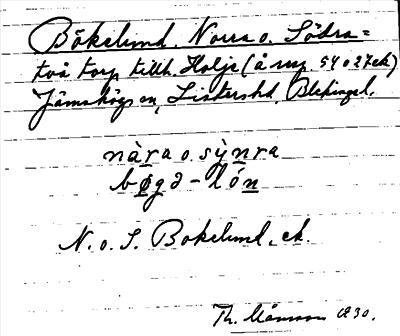 Bökelund, Norra o. Södra =
två torp tillh. Holje (å reg. 54 o 27 ek)
Jämshögs sn, Listers hd, Blekinge l.
nàra o. sỳnra
bøgə - lón
N. o. S. Bokelund, ek.
Th. Månsson 1930.